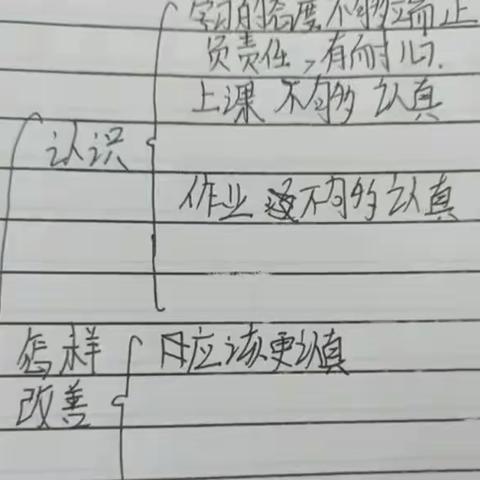 学习的态度不够端正
负责任，有耐心.
上课 不够认真
认识
作业不够认真
怎样
改善
应该更认真